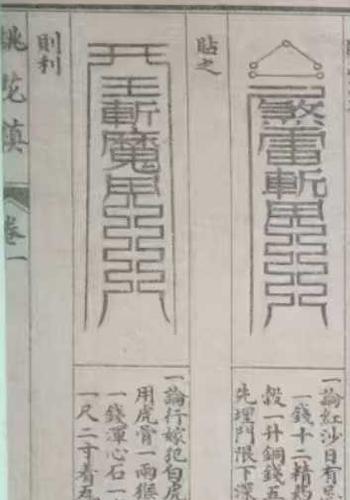 煞雷斬
一論紅沙日有
一錢十二精
穀一升銅錢五
先埋門限下深
貼之
王斬魔
一論行嫁犯白虎
用虎骨一兩猴
一錢渾心石一
一尺二寸看五
則利
桃花鎮
卷一